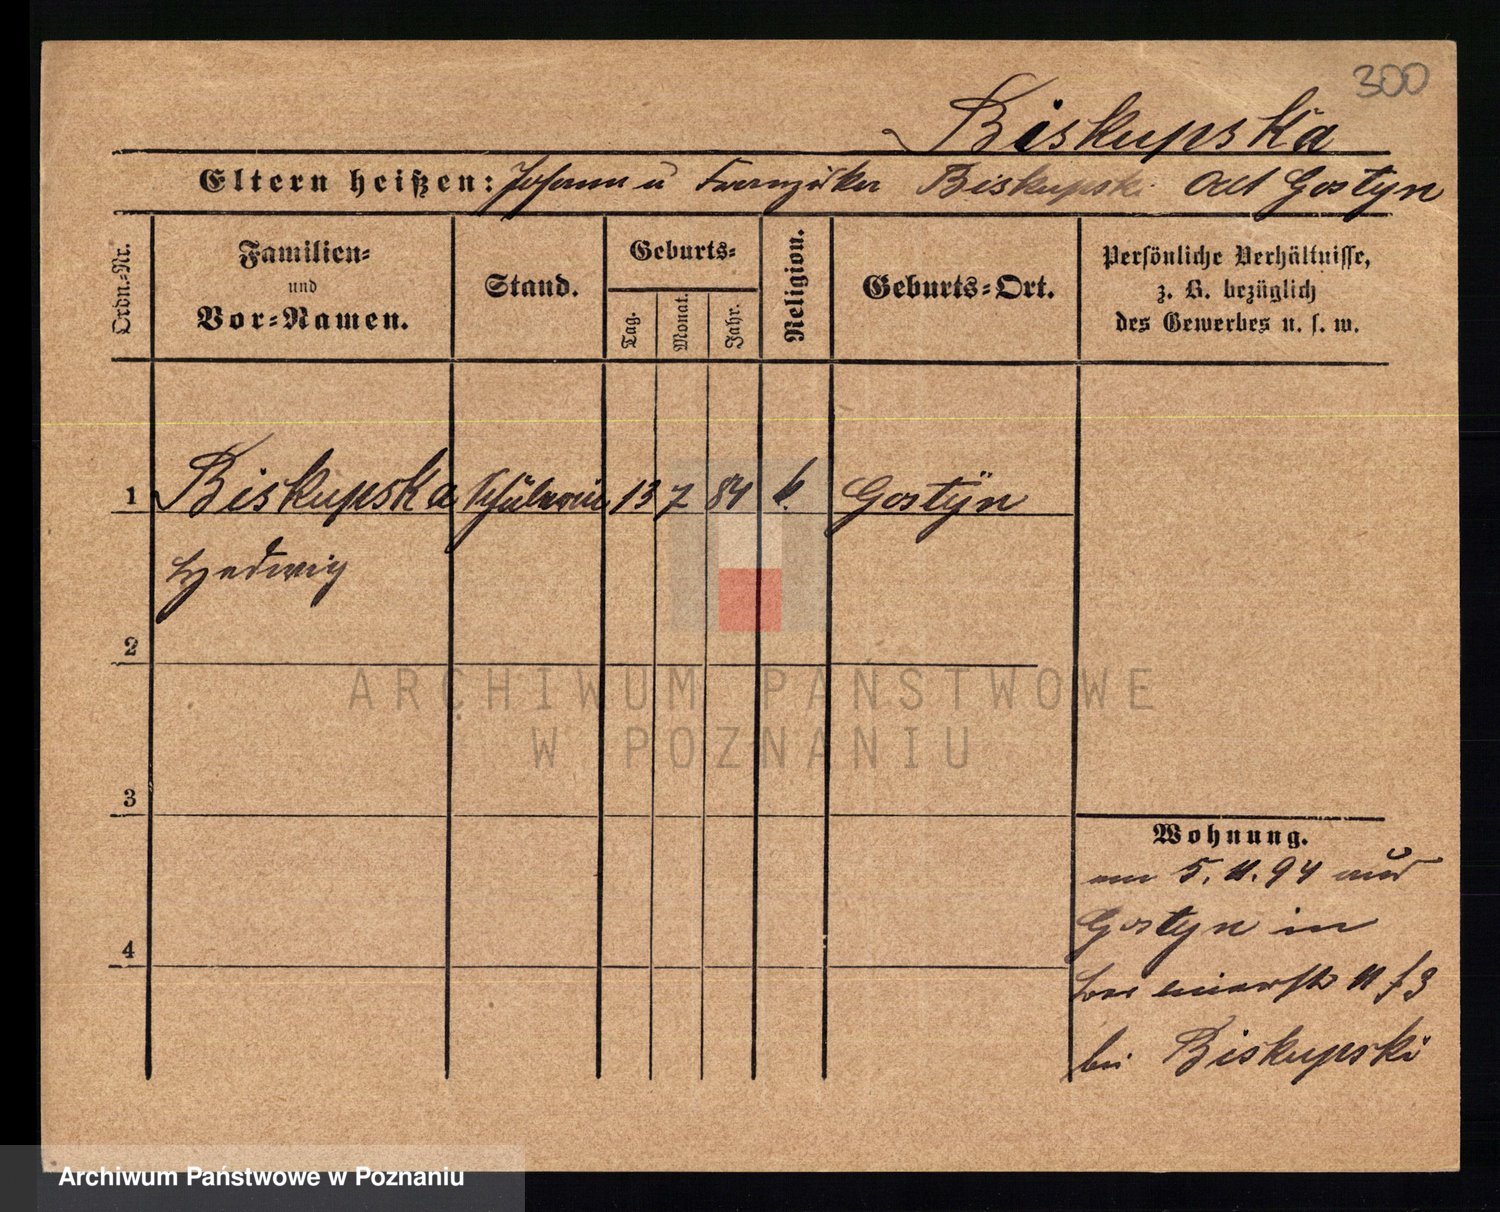 300
Biskupska
Eltern heißen: Johann u Franziska Biskupski aus Gostyn
Ordn.-Nr.
Familien-
und
Vor-Namen.
Stand.
Geburts-
Tag.
Monat.
Jahr.
Religion.
Geburts-Ort.
Persönliche Verhältnisse,
z. B. bezüglich
des Gewerbes u. s. w.
1 Biskupska Schülerin 13 7 84 k. Gostÿn
Hedwig
2
ARCHIWUM PAŃSTWOWE
W POZNANIU
3
4
Wohnung.
am 5. 11. 94 aus
Gostyn in
11 f 3
bei Biskupski
Archiwum Państwowe w Poznaniu